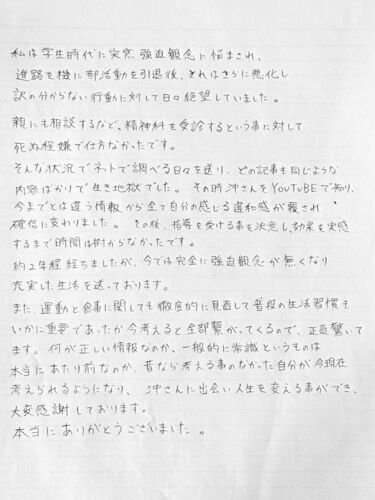 私は学生時代に突然強迫観念に悩まされ、
進路を機に部活動を引退後、それはさらに悪化し
訳の分からない行動に対して日々絶望していました。
親にも相談するなど、精神科を受診するという事に対して
死ぬ程嫌で仕方なかったです。
そんな状況でネットで調べる日々を送り、どの記事も同じような
内容ばかりで生き地獄でした。その時沖さんをYOUTUBEで知り、
今までとは違う情報から全て自分の感じる違和感が覆され
確信に変わりました。その後、指導を受ける事を決意し、効果を実感
するまで時間は掛からなかったです。
約2年程経ちましたが、今では完全に強迫観念が無くなり
充実した生活を送っております。
また、運動と食事に関しても徹底的に見直して普段の生活習慣も
いかに重要であったか今考えると全部繋がってくるので、正直驚いて
ます。何が正しい情報なのか、一般的に常識というものは
本当にあたり前なのか、昔なら考える事のなかった自分が今現在
考えられるようになり、沖さんに出会い人生を変える事ができ、
大変感謝しております。
本当にありがとうございました。